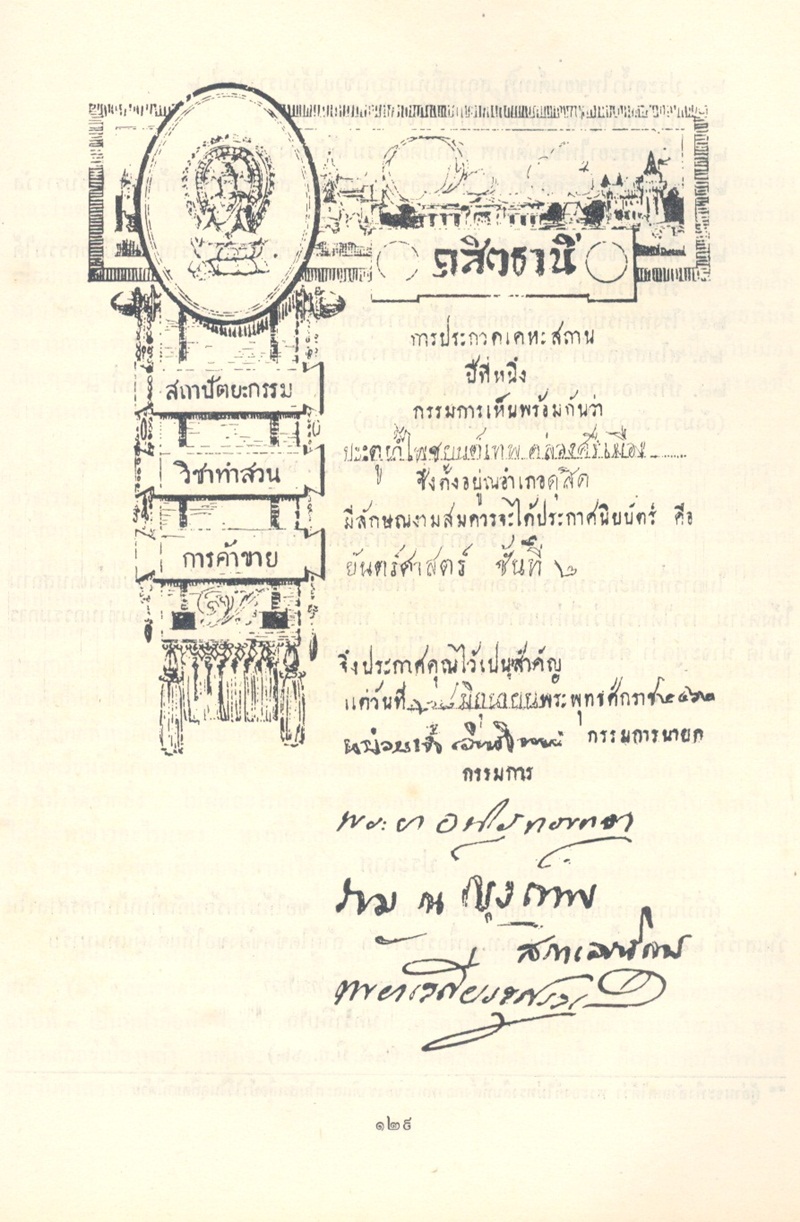 ดุสิตธานี
การประกวดเคหะสถาน
ปีที่หนึ่ง
สถาปัตยะกรรม
วิชาทำสวน
การค้าขาย
กรรมการเห็นพร้อมกันว่า
ประตูน้ำไพชยนต์เทพ คลองศรีเมือง
ซึ่งตั้งอยู่ณอำเภอดุสิต
มีลักษณงามสมควรจะได้ประกาศนิยบัตร์ คือ
ยันตร์ศาสตร์ ชั้นที่ ๒
จึ่งประกาศคุณไว้เปนสำคัญ
แต่วันที่ มิถุนายน พระพุทธศักราช ๒๔๖๒
กรรมการนายก
กรรมการ
ราม ณ กรุงเทพ
๑๒๕